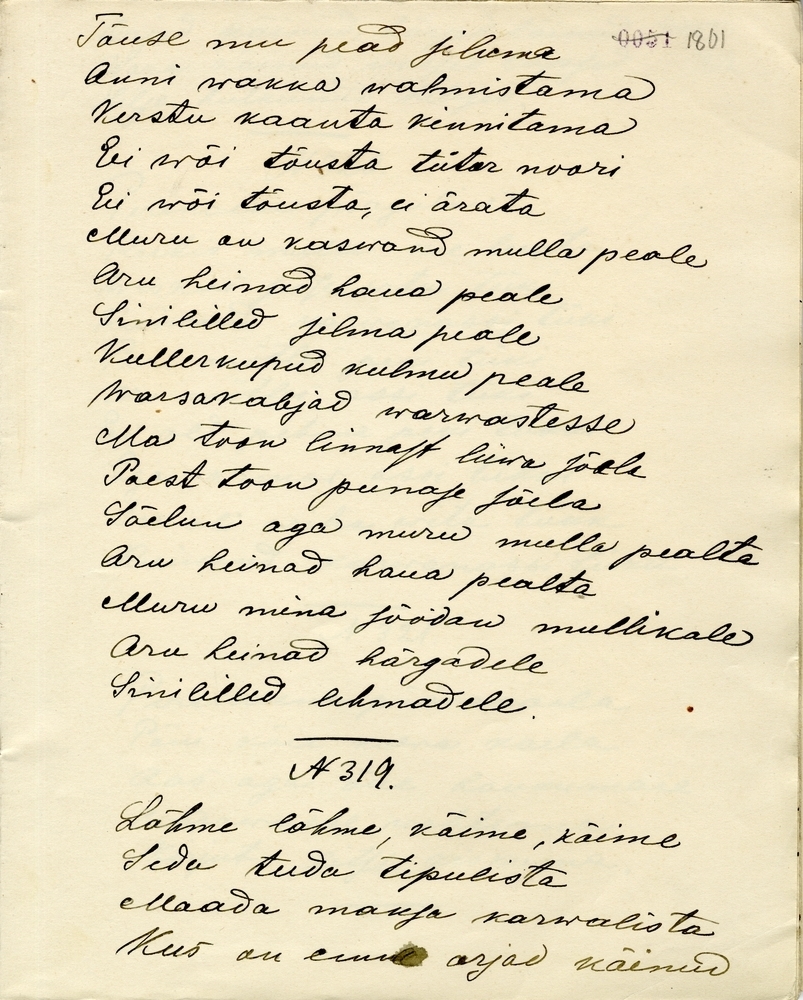 0051 1801
Tõuse mu pead siluma
Anni wakka walmistama
Kerstu kaanta kinnitama
Ei wõi tõusta tütar noori
Ei wõi tõusta, ei ärata
Muru on kaswand mulla peale
Aru heinad haua peale
Sinililled silma peale
Kullerkupud kulmu peale
Warsakabjad warwastesse
Ma toon linnast liiwa sõela
Poest toon punase sõela
Sõelun aga muru mulla pealta
Aru heinad haua pealta
Muru mina söödan mullikale
Aru heinad härgadele
Sinililled lehmadele.
N 319.
Lähme lähme, käime, käime
Seda teeda tipulista
Maada maksa karwalista
Kus on enne orjad käinud